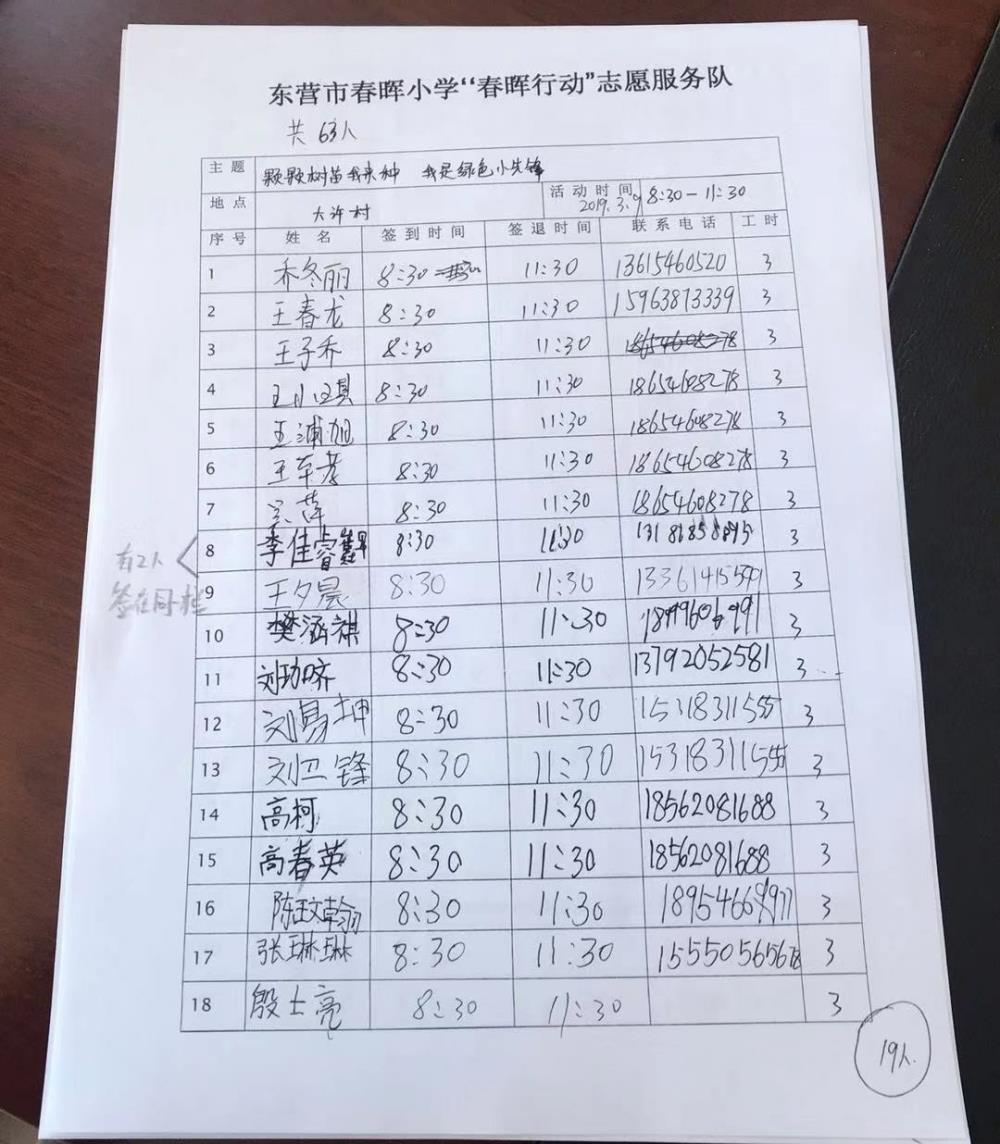 东营市春晖小学“春晖行动”志愿服务队
共 63人
主题 颗颗树苗我来种 我是绿色小先锋
地点 大许村 活动时间 2019.3.9 8:30-11:30
序号 姓名 签到时间 签退时间 联系电话 工时
1 乔冬丽 8:30 11:30 13615460520 3
2 王春龙 8:30 11:30 15963873339 3
3 王子乔 8:30 11:30 18654608278 3
4 8:30 11:30 18654608278 3
5 王浦旭 8:30 11:30 18654608278 3
6 王军孝 8:30 11:30 18654608278 3
7 宗萍 8:30 11:30 18654608278 3
8 李佳睿 8:30 11:30 3
有2人
签在同栏
9 王夕晨 8:30 11:30 3
10 樊涵祺 8:30 11:30 3
11 8:30 11:30 13792052581 3
12 刘易坤 8:30 11:30 15318311555 3
13 刘卫锋 8:30 11:30 15318311555 3
14 高柯 8:30 11:30 18562081688 3
15 高春英 8:30 11:30 18562081688 3
16 陈玟翰 8:30 11:30 3
17 张琳琳 8:30 11:30 15550565678 3
18 殷士亮 8:30 11:30 3
19人.